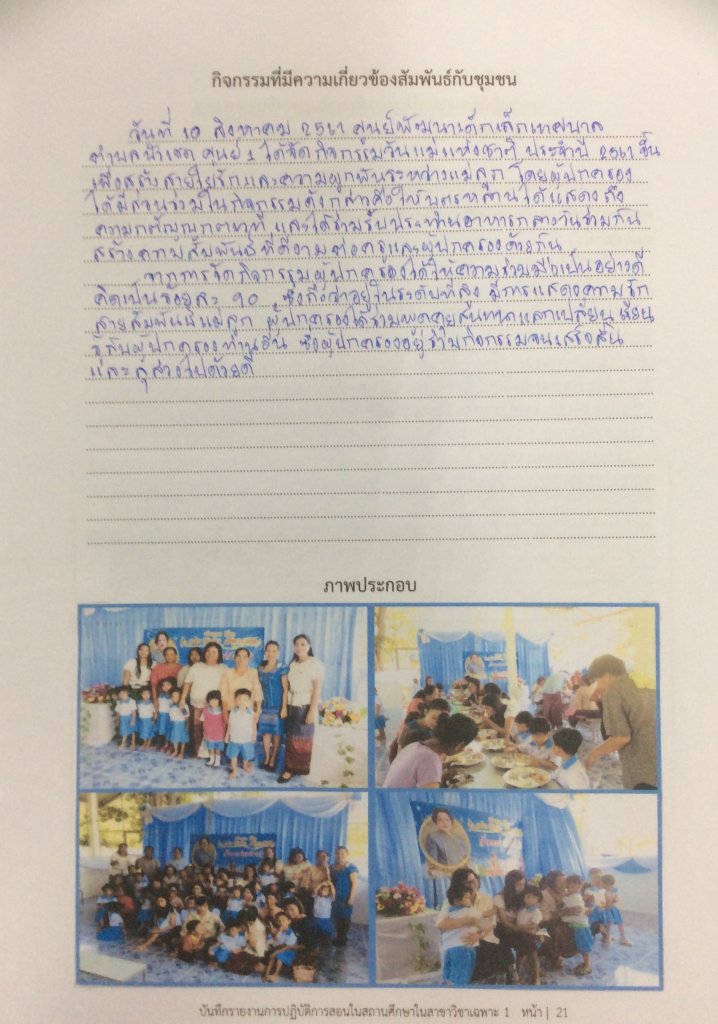 กิจกรรมที่มีความเกี่ยวข้องสัมพันธ์กับชุมชน
วันที่ 10 สิงหาคม 2561 ศูนย์พัฒนาเด็กเล็กเทศบาล
ตำบล ศูนย์ 1 ได้จัดกิจกรรมวันแม่แห่งชาติ ประจำปี 2561 ขึ้น
เพื่อสร้างสายใยรักและความผูกพันระหว่างแม่ลูก โดยผู้ปกครอง
ได้มีส่วนร่วมในกิจกรรมดังกล่าวคือให้บุตรหลานได้แสดงถึง
ความกตัญญูกตเวที และได้ร่วมรับประทานอาหารกลางวันร่วมกัน
สร้างความสัมพันธ์ที่ดีงามต่อครูและผู้ปกครองด้วยกัน
จากการจัดกิจกรรมผู้ปกครองได้ให้ความร่วมมือเป็นอย่างดี
คิดเป็นร้อยละ 90 ซึ่งถือว่าอยู่ในระดับที่สูง มีการแสดงความรัก
สายสัมพันธ์แม่ลูก ผู้ปกครองได้ร่วมพูดคุยสนทนาแลกเปลี่ยน เรียน
รู้กับผู้ปกครองท่านอื่น ซึ่งผู้ปกครองอยู่ร่วมกิจกรรมจนเสร็จสิ้น
และลุล่วงไปด้วยดี
ภาพประกอบ
บันทึกรายงานการปฏิบัติการสอนในสถานศึกษาในสาขาวิชาเฉพาะ 1 หน้า | 21